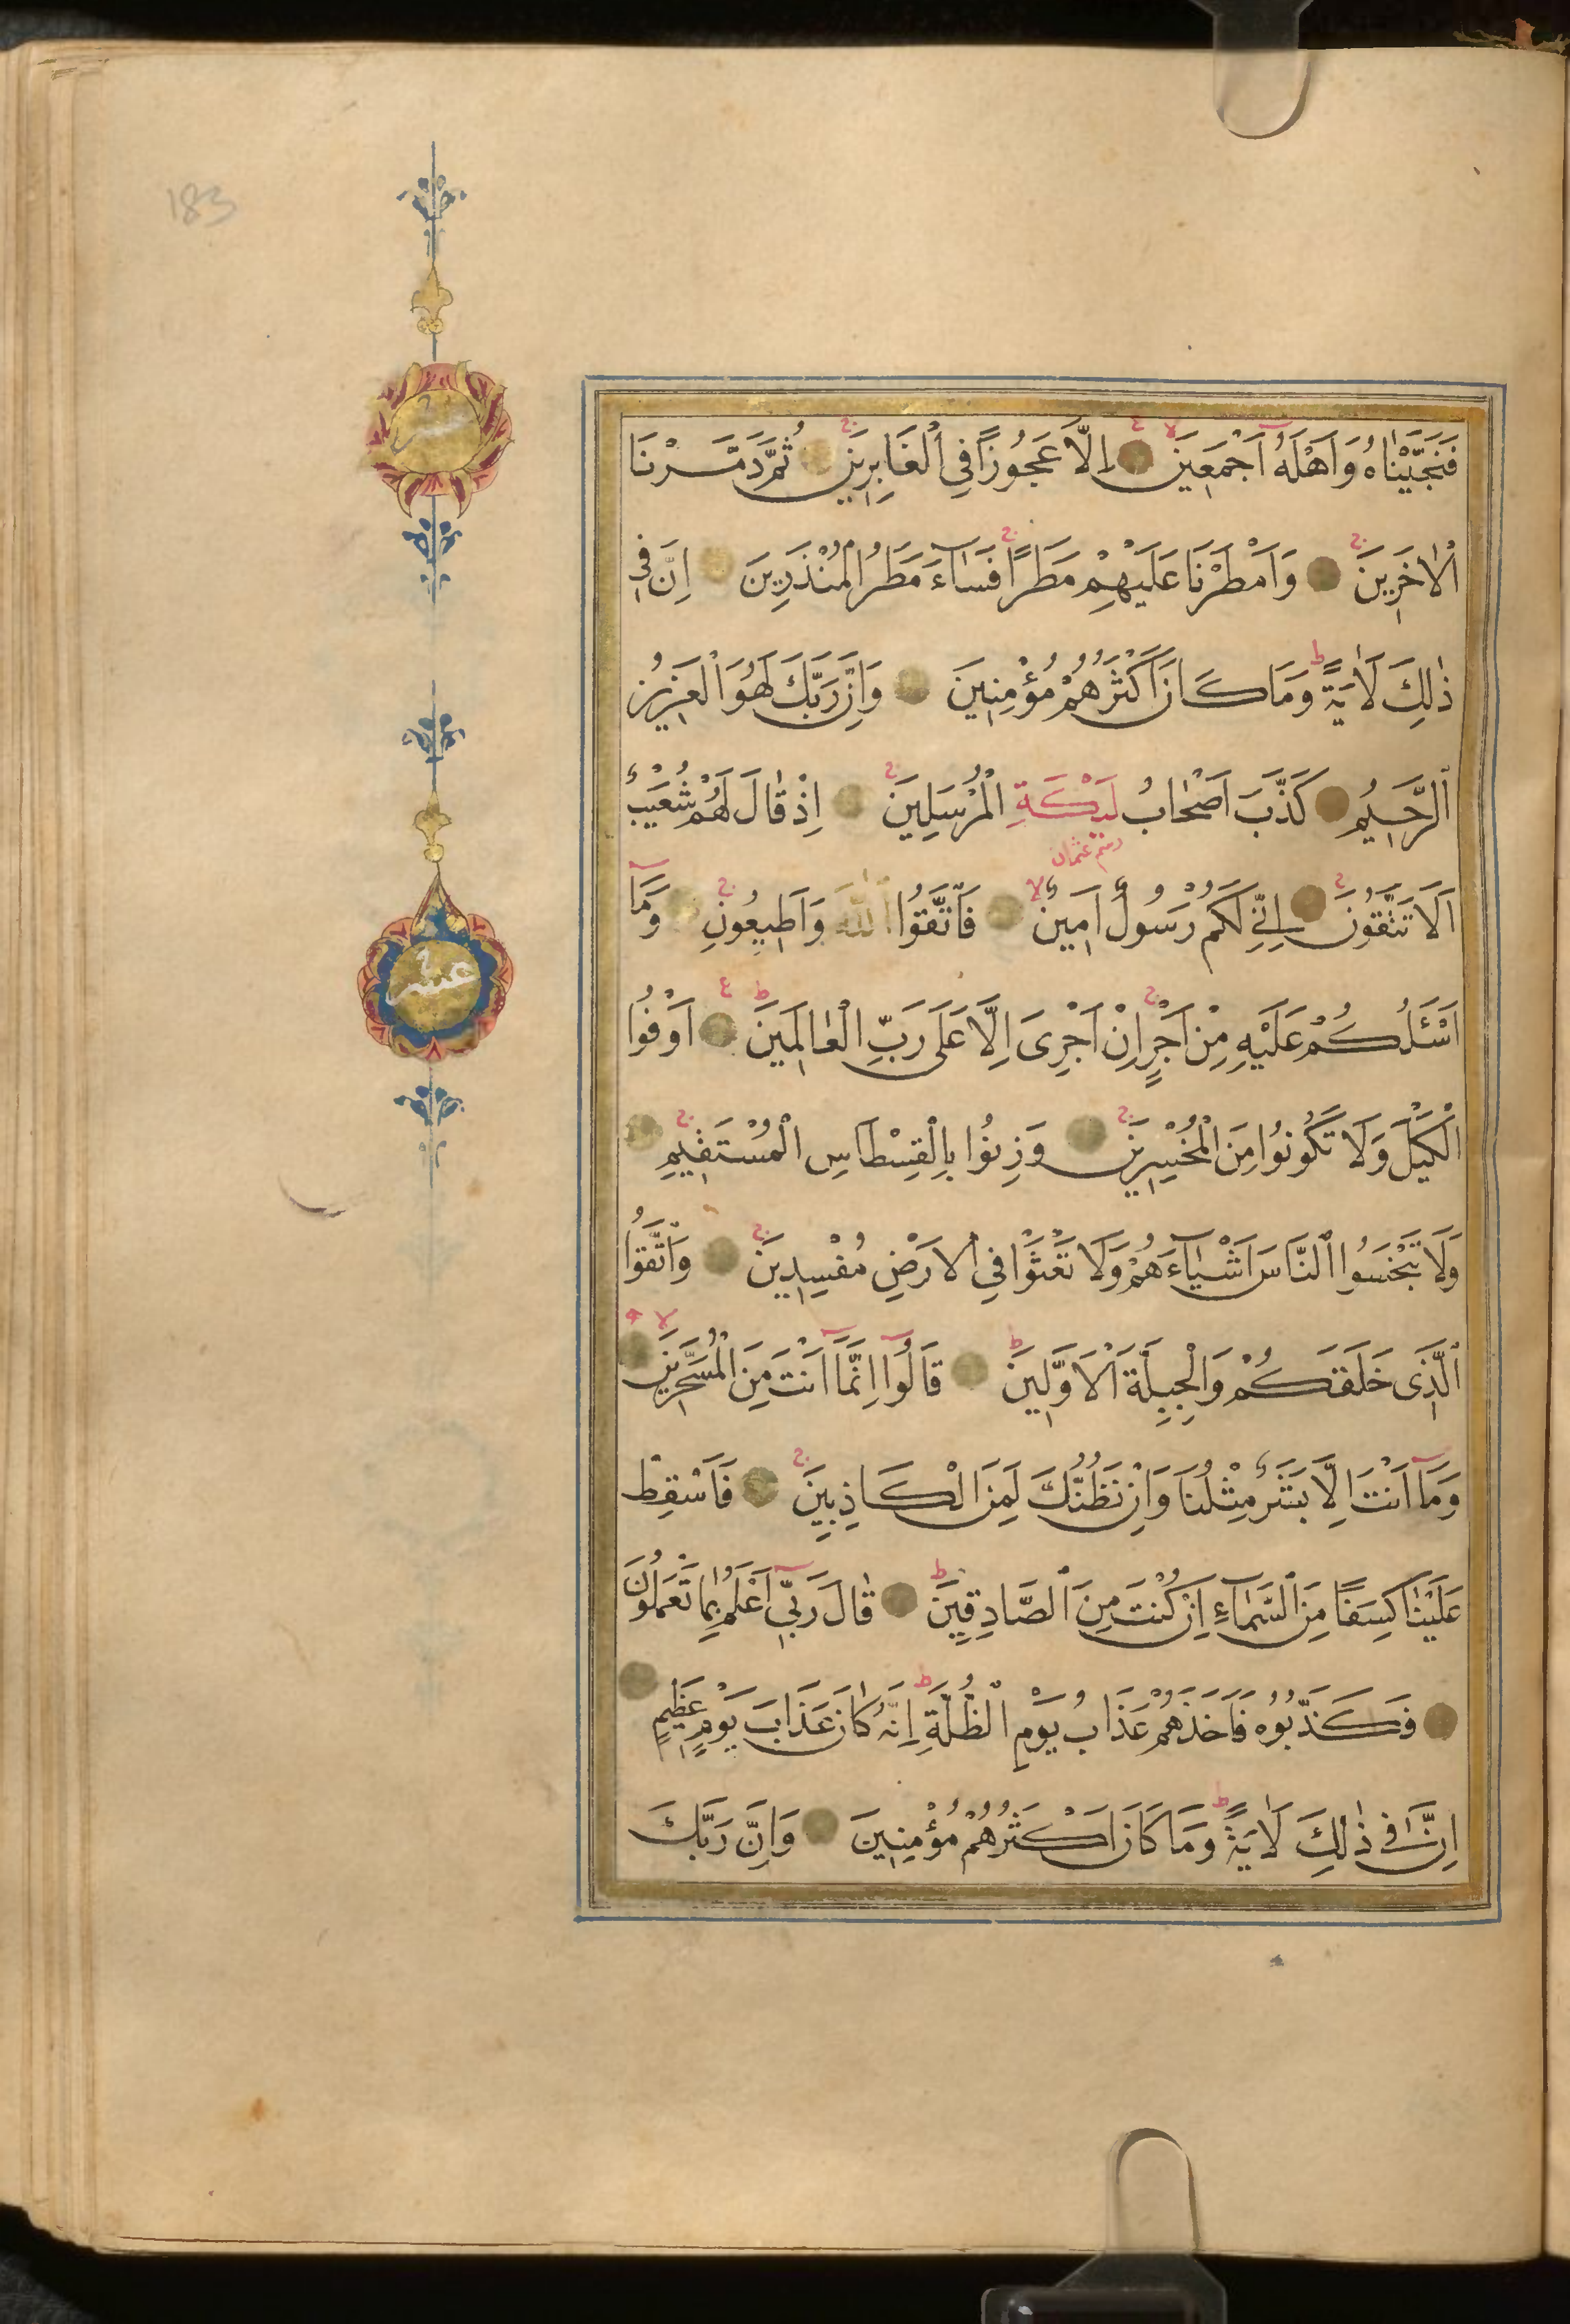 183
فَنَجَّيْنَاهُ وَاَهْلَهُٓ اَجْمَعِينَ اِلَّا عَجُوزًا فِي الْغَابِرِينَ ثُمَّ دَمَّرْنَا
الْاٰخَرِينَ وَاَمْطَرْنَا عَلَيْهِمْ مَطَرًا فَسَٓاءَ مَطَرُ الْمُنْذَرِينَ اِنَّ فِي
ذٰلِكَ لَاٰيَةً وَمَا كَانَ اَكْثَرُهُمْ مُؤْمِنِينَ وَاِنَّ رَبَّكَ لَهُوَ الْعَزِيزُ
الرَّحِيمُ كَذَّبَ اَصْحَابُ لَيْكَةِ الْمُرْسَلِينَ اِذْ قَالَ لَهُمْ شُعَيْبٌ
رسم عثمان
اَلَا تَتَّقُونَ اِنِّي لَكُمْ رَسُولٌ اَمِينٌ فَاتَّقُوا اللّٰهَ وَاَطِيعُونِ وَمَٓا
اَسْـَٔلُكُمْ عَلَيْهِ مِنْ اَجْرٍ اِنْ اَجْرِيَ اِلَّا عَلَى رَبِّ الْعَالَمِينَ اَوْفُوا
الْكَيْلَ وَلَا تَكُونُوا مِنَ الْمُخْسِرِينَ وَزِنُوا بِالْقِسْطَاسِ الْمُسْتَقِيمِ
وَلَا تَبْخَسُوا النَّاسَ اَشْيَٓاءَهُمْ وَلَا تَعْثَوْا فِي الْاَرْضِ مُفْسِدِينَ وَاتَّقُوا
الَّذِي خَلَقَكُمْ وَالْجِبِلَّةَ الْاَوَّلِينَ قَالُٓوا اِنَّمَٓا اَنْتَ مِنَ الْمُسَحَّرِينَ
وَمَٓا اَنْتَ اِلَّا بَشَرٌ مِثْلُنَا وَاِنْ نَظُنُّكَ لَمِنَ الْكَاذِبِينَ فَاَسْقِطْ
عَلَيْنَا كِسَفًا مِنَ السَّمَٓاءِ اِنْ كُنْتَ مِنَ الصَّادِقِينَ قَالَ رَبِّٓي اَعْلَمُ بِمَا تَعْمَلُونَ
فَكَذَّبُوهُ فَاَخَذَهُمْ عَذَابُ يَوْمِ الظُّلَّةِ اِنَّهُ كَانَ عَذَابَ يَوْمٍ عَظِيمٍ
اِنَّ فِي ذٰلِكَ لَاٰيَةً وَمَا كَانَ اَكْثَرُهُمْ مُؤْمِنِينَ وَاِنَّ رَبَّكَ
عشر
عشر